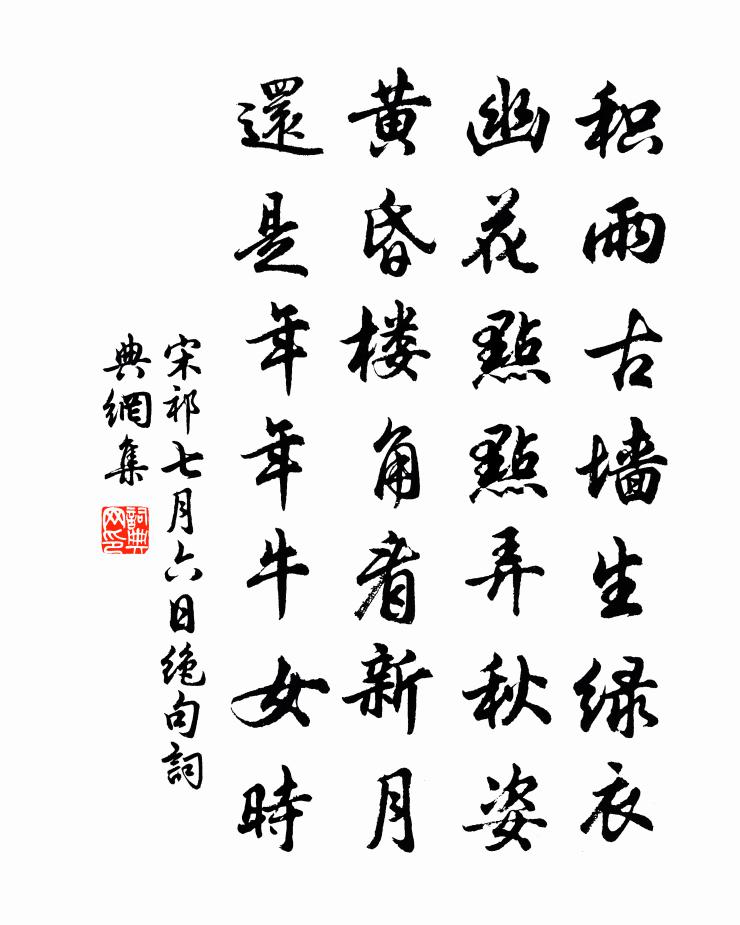 积雨古墙生绿衣
幽花點點弄秋姿
黄昏楼角看新月
還是年年牛女時
宋祁七月六日绝句詞
典網集
詞典
网印